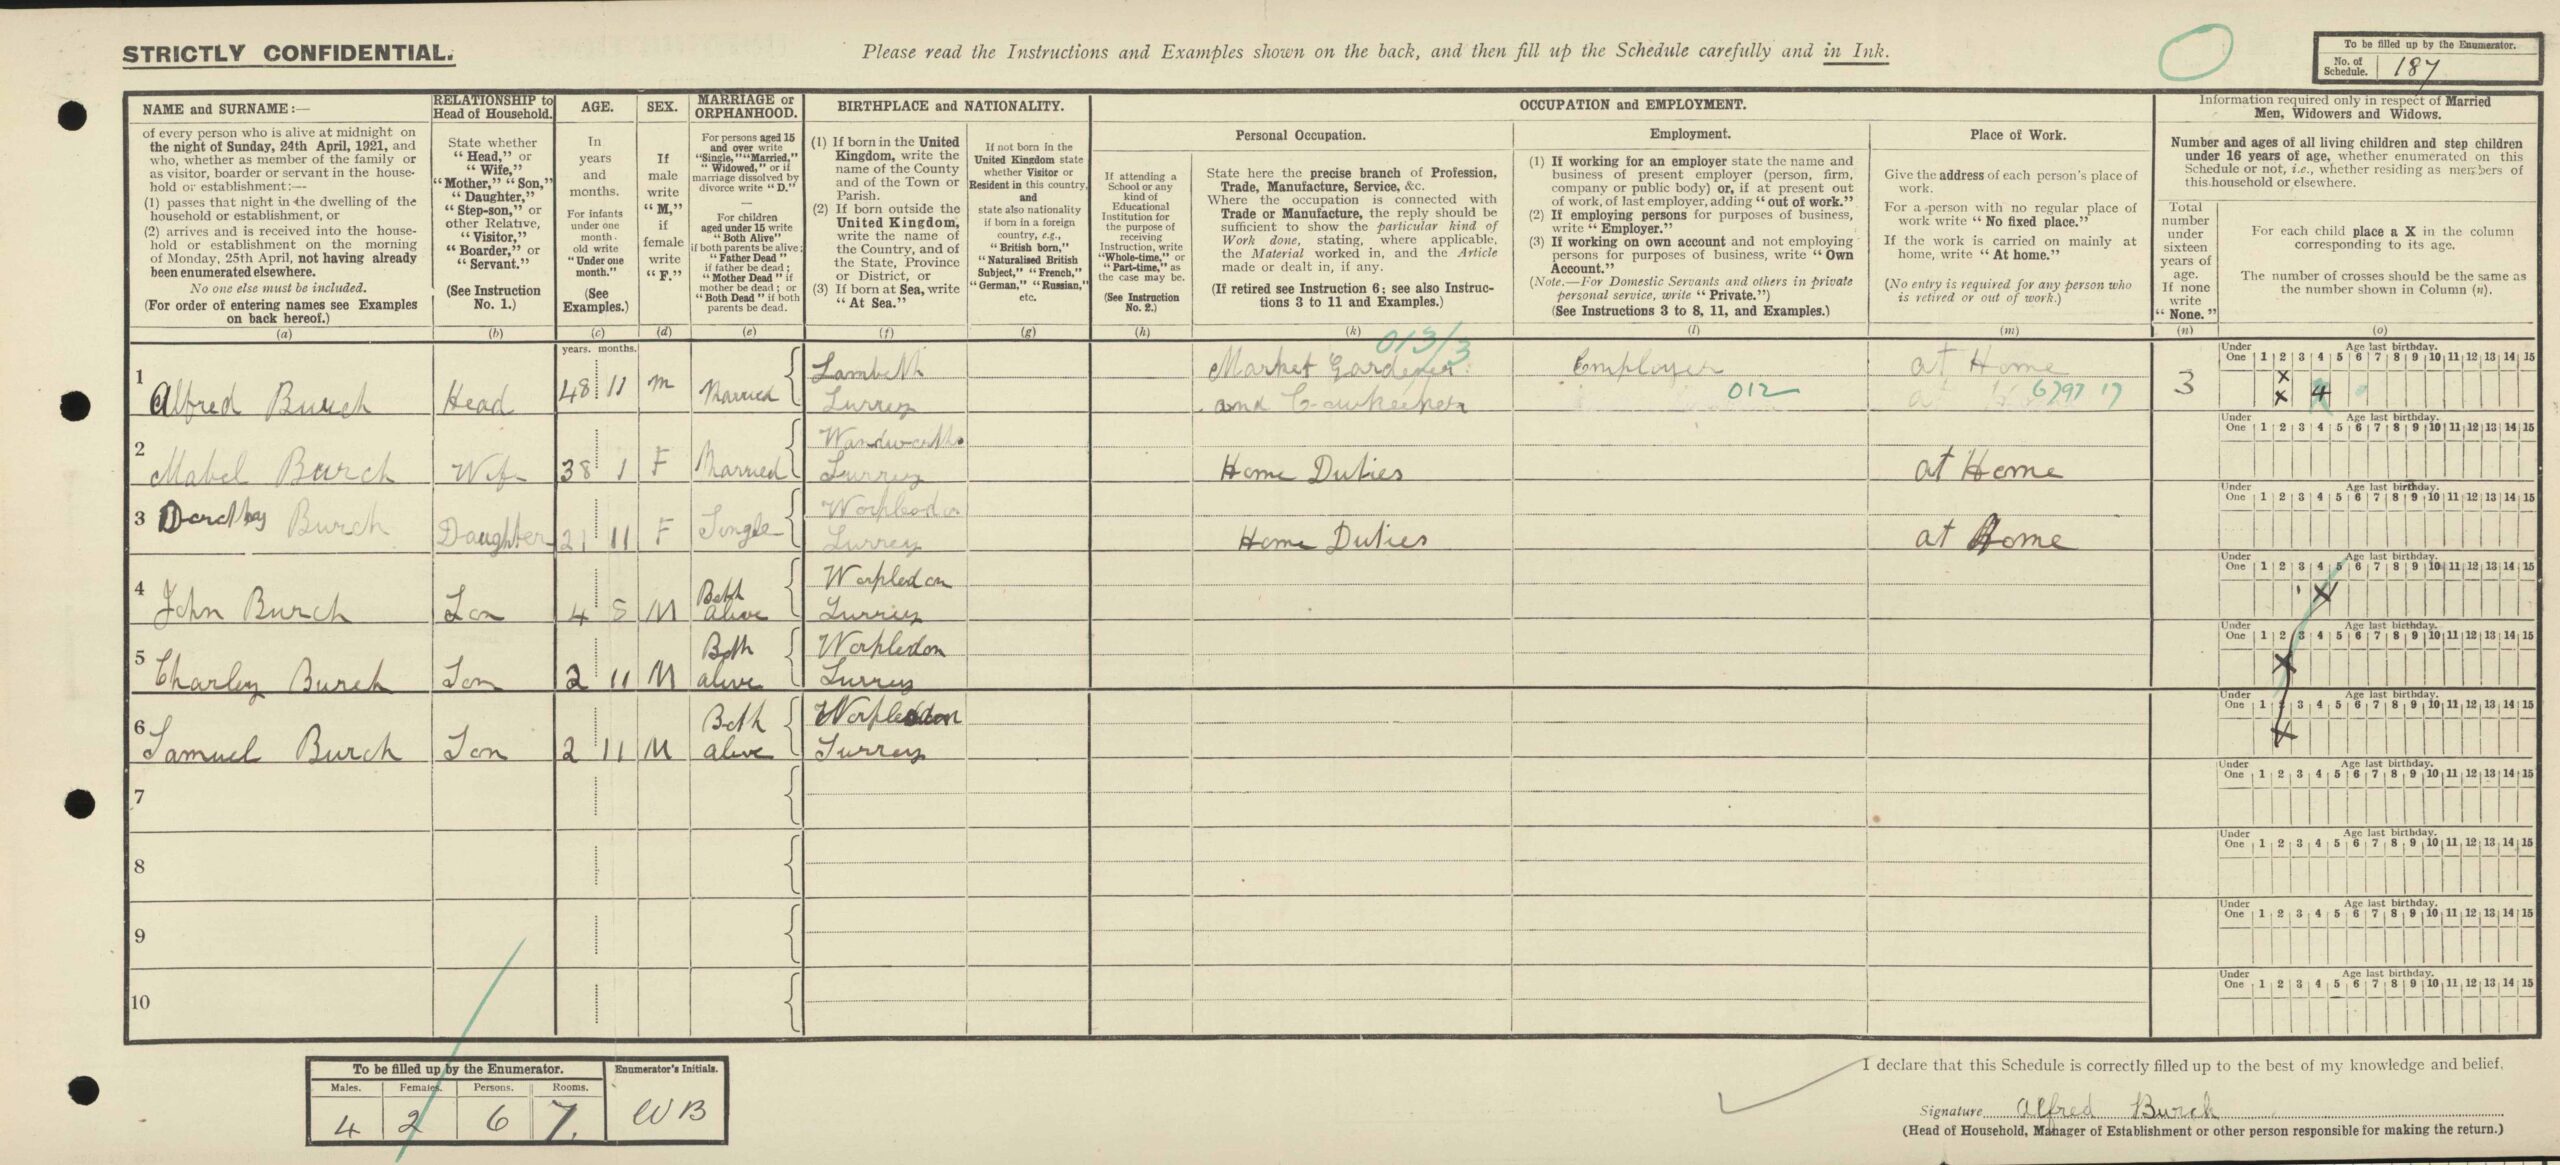 STRICTLY CONFIDENTIAL.
Please read the Instructions and Examples shown on the back, and then fill up the Schedule carefully and in Ink.
To be filled up by the Enumerator.
No. of Schedule. 187
NAME and SURNAME:—
of every person who is alive at midnight on
the night of Sunday, 24th April, 1921, and
who, whether as member of the family or
as visitor, boarder or servant in the house-
hold or establishment:—
(1) passes that night in the dwelling of the
household or establishment, or
(2) arrives and is received into the house-
hold or establishment on the morning
of Monday, 25th April, not having already
been enumerated elsewhere.
No one else must be included.
(For order of entering names see Examples
on back hereof.)
(a)
RELATIONSHIP to
Head of Household.
State whether
"Head," or
"Wife,"
"Mother," "Son,"
"Daughter,"
"Step-son," or
other Relative,
"Visitor,"
"Boarder," or
"Servant."
(See Instruction
No. 1.)
(b)
AGE.
In
years
and
months.
For infants
under one
month
old write
"Under one
month."
(See
Examples.)
(c)
SEX.
If
male
write
"M,"
if
female
write
"F."
(d)
MARRIAGE or
ORPHANHOOD.
For persons aged 15
and over write
"Single," "Married,"
"Widowed," or if
marriage dissolved by
divorce write "D."
—
For children
aged under 15 write
"Both Alive"
if both parents be alive;
"Father Dead"
if father be dead;
"Mother Dead" if
mother be dead; or
"Both Dead" if both
parents be dead.
(e)
BIRTHPLACE and NATIONALITY.
(1) If born in the United
Kingdom, write the
name of the County
and of the Town or
Parish.
(2) If born outside the
United Kingdom,
write the name of
the Country, and of
the State, Province
or District, or
(3) If born at Sea, write
"At Sea."
(f)
If not born in the
United Kingdom state
whether Visitor or
Resident in this country,
and
state also nationality
if born in a foreign
country, e.g.,
"British born,"
"Naturalised British
Subject," "French,"
"German," "Russian,"
etc.
(g)
OCCUPATION and EMPLOYMENT.
If attending a
School or any
kind of
Educational
Institution for
the purpose of
receiving
Instruction, write
"Whole-time," or
"Part-time," as
the case may be.
(See Instruction
No. 2.)
(h)
Personal Occupation.
State here the precise branch of Profession,
Trade, Manufacture, Service, &c.
Where the occupation is connected with
Trade or Manufacture, the reply should be
sufficient to show the particular kind of
Work done, stating, where applicable,
the Material worked in, and the Article
made or dealt in, if any.
(If retired see Instruction 6; see also Instruc-
tions 3 to 11 and Examples.)
(k)
Employment.
(1) If working for an employer state the name and
business of present employer (person, firm,
company or public body) or, if at present out
of work, of last employer, adding "out of work."
(2) If employing persons for purposes of business,
write "Employer."
(3) If working on own account and not employing
persons for purposes of business, write "Own
Account."
(Note.—For Domestic Servants and others in private
personal service, write "Private.")
(See Instructions 3 to 8, 11, and Examples.)
(l)
Place of Work.
Give the address of each person's place of
work.
For a person with no regular place of
work write "No fixed place."
If the work is carried on mainly at
home, write "At home."
(No entry is required for any person who
is retired or out of work.)
(m)
Information required only in respect of Married
Men, Widowers and Widows.
Number and ages of all living children and step children
under 16 years of age, whether enumerated on this
Schedule or not, i.e., whether residing as members of
this household or elsewhere.
Total
number
under
sixteen
years of
age.
If none
write
"None."
(n)
For each child place a X in the column
corresponding to its age.
The number of crosses should be the same as
the number shown in Column (n).
(o)
years. months.
013/3
Under One Age last birthday. 1 2 3 4 5 6 7 8 9 10 11 12 13 14 15
1 Alfred Burch Head 48 11 m Married Lambeth Surrey Market Gardener and Cowkeeper Employer 012 at Home 6797 17 3 x x 4
Under One Age last birthday. 1 2 3 4 5 6 7 8 9 10 11 12 13 14 15
2 Mabel Burch Wife 38 1 F Married Wandworth Surrey Home Duties at Home
Under One Age last birthday. 1 2 3 4 5 6 7 8 9 10 11 12 13 14 15
3 Dorothy Burch Daughter 21 11 F Single Worpledon Surrey Home Duties at Home
Under One Age last birthday. 1 2 3 4 5 6 7 8 9 10 11 12 13 14 15
4 John Burch Son 4 8 M Both alive Worpledon Surrey X
Under One Age last birthday. 1 2 3 4 5 6 7 8 9 10 11 12 13 14 15
5 Charley Burch Son 2 11 M Both alive Worpledon Surrey X
Under One Age last birthday. 1 2 3 4 5 6 7 8 9 10 11 12 13 14 15
6 Samuel Burch Son 2 11 M Both alive Worpledon Surrey X
Under One Age last birthday. 1 2 3 4 5 6 7 8 9 10 11 12 13 14 15
7
Under One Age last birthday. 1 2 3 4 5 6 7 8 9 10 11 12 13 14 15
8
Under One Age last birthday. 1 2 3 4 5 6 7 8 9 10 11 12 13 14 15
9
Under One Age last birthday. 1 2 3 4 5 6 7 8 9 10 11 12 13 14 15
10
To be filled up by the Enumerator.
Males. Females. Persons. Rooms.
4 2 6 7.
Enumerator's Initials.
WB
I declare that this Schedule is correctly filled up to the best of my knowledge and belief.
Signature Alfred Burch
(Head of Household, Manager of Establishment or other person responsible for making the return.)